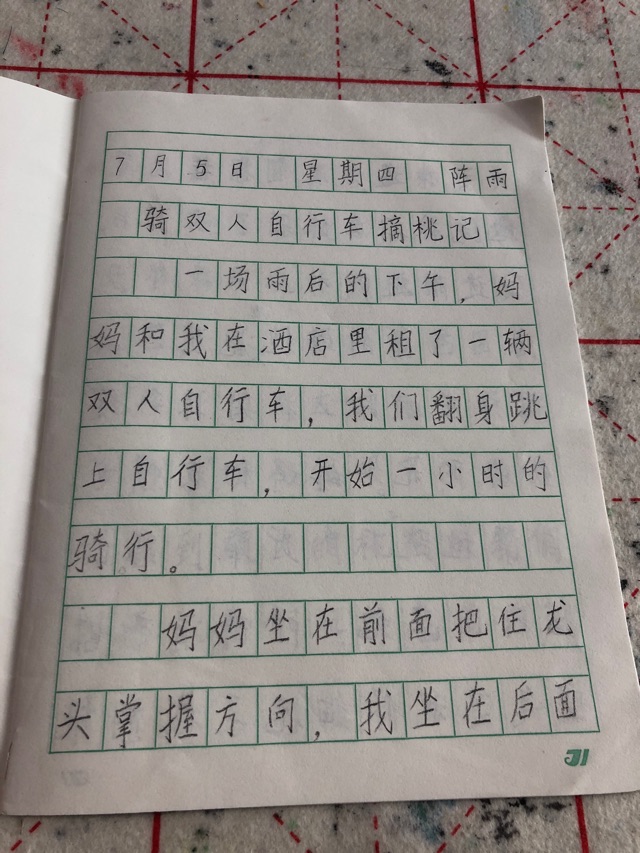 7月5日 星期四 阵雨
骑双人自行车摘桃记
一场雨后的下午，妈
妈和我在酒店里租了一辆
双人自行车，我们翻身跳
上自行车，开始一小时的
骑行。
妈妈坐在前面把住龙
头掌握方向，我坐在后面